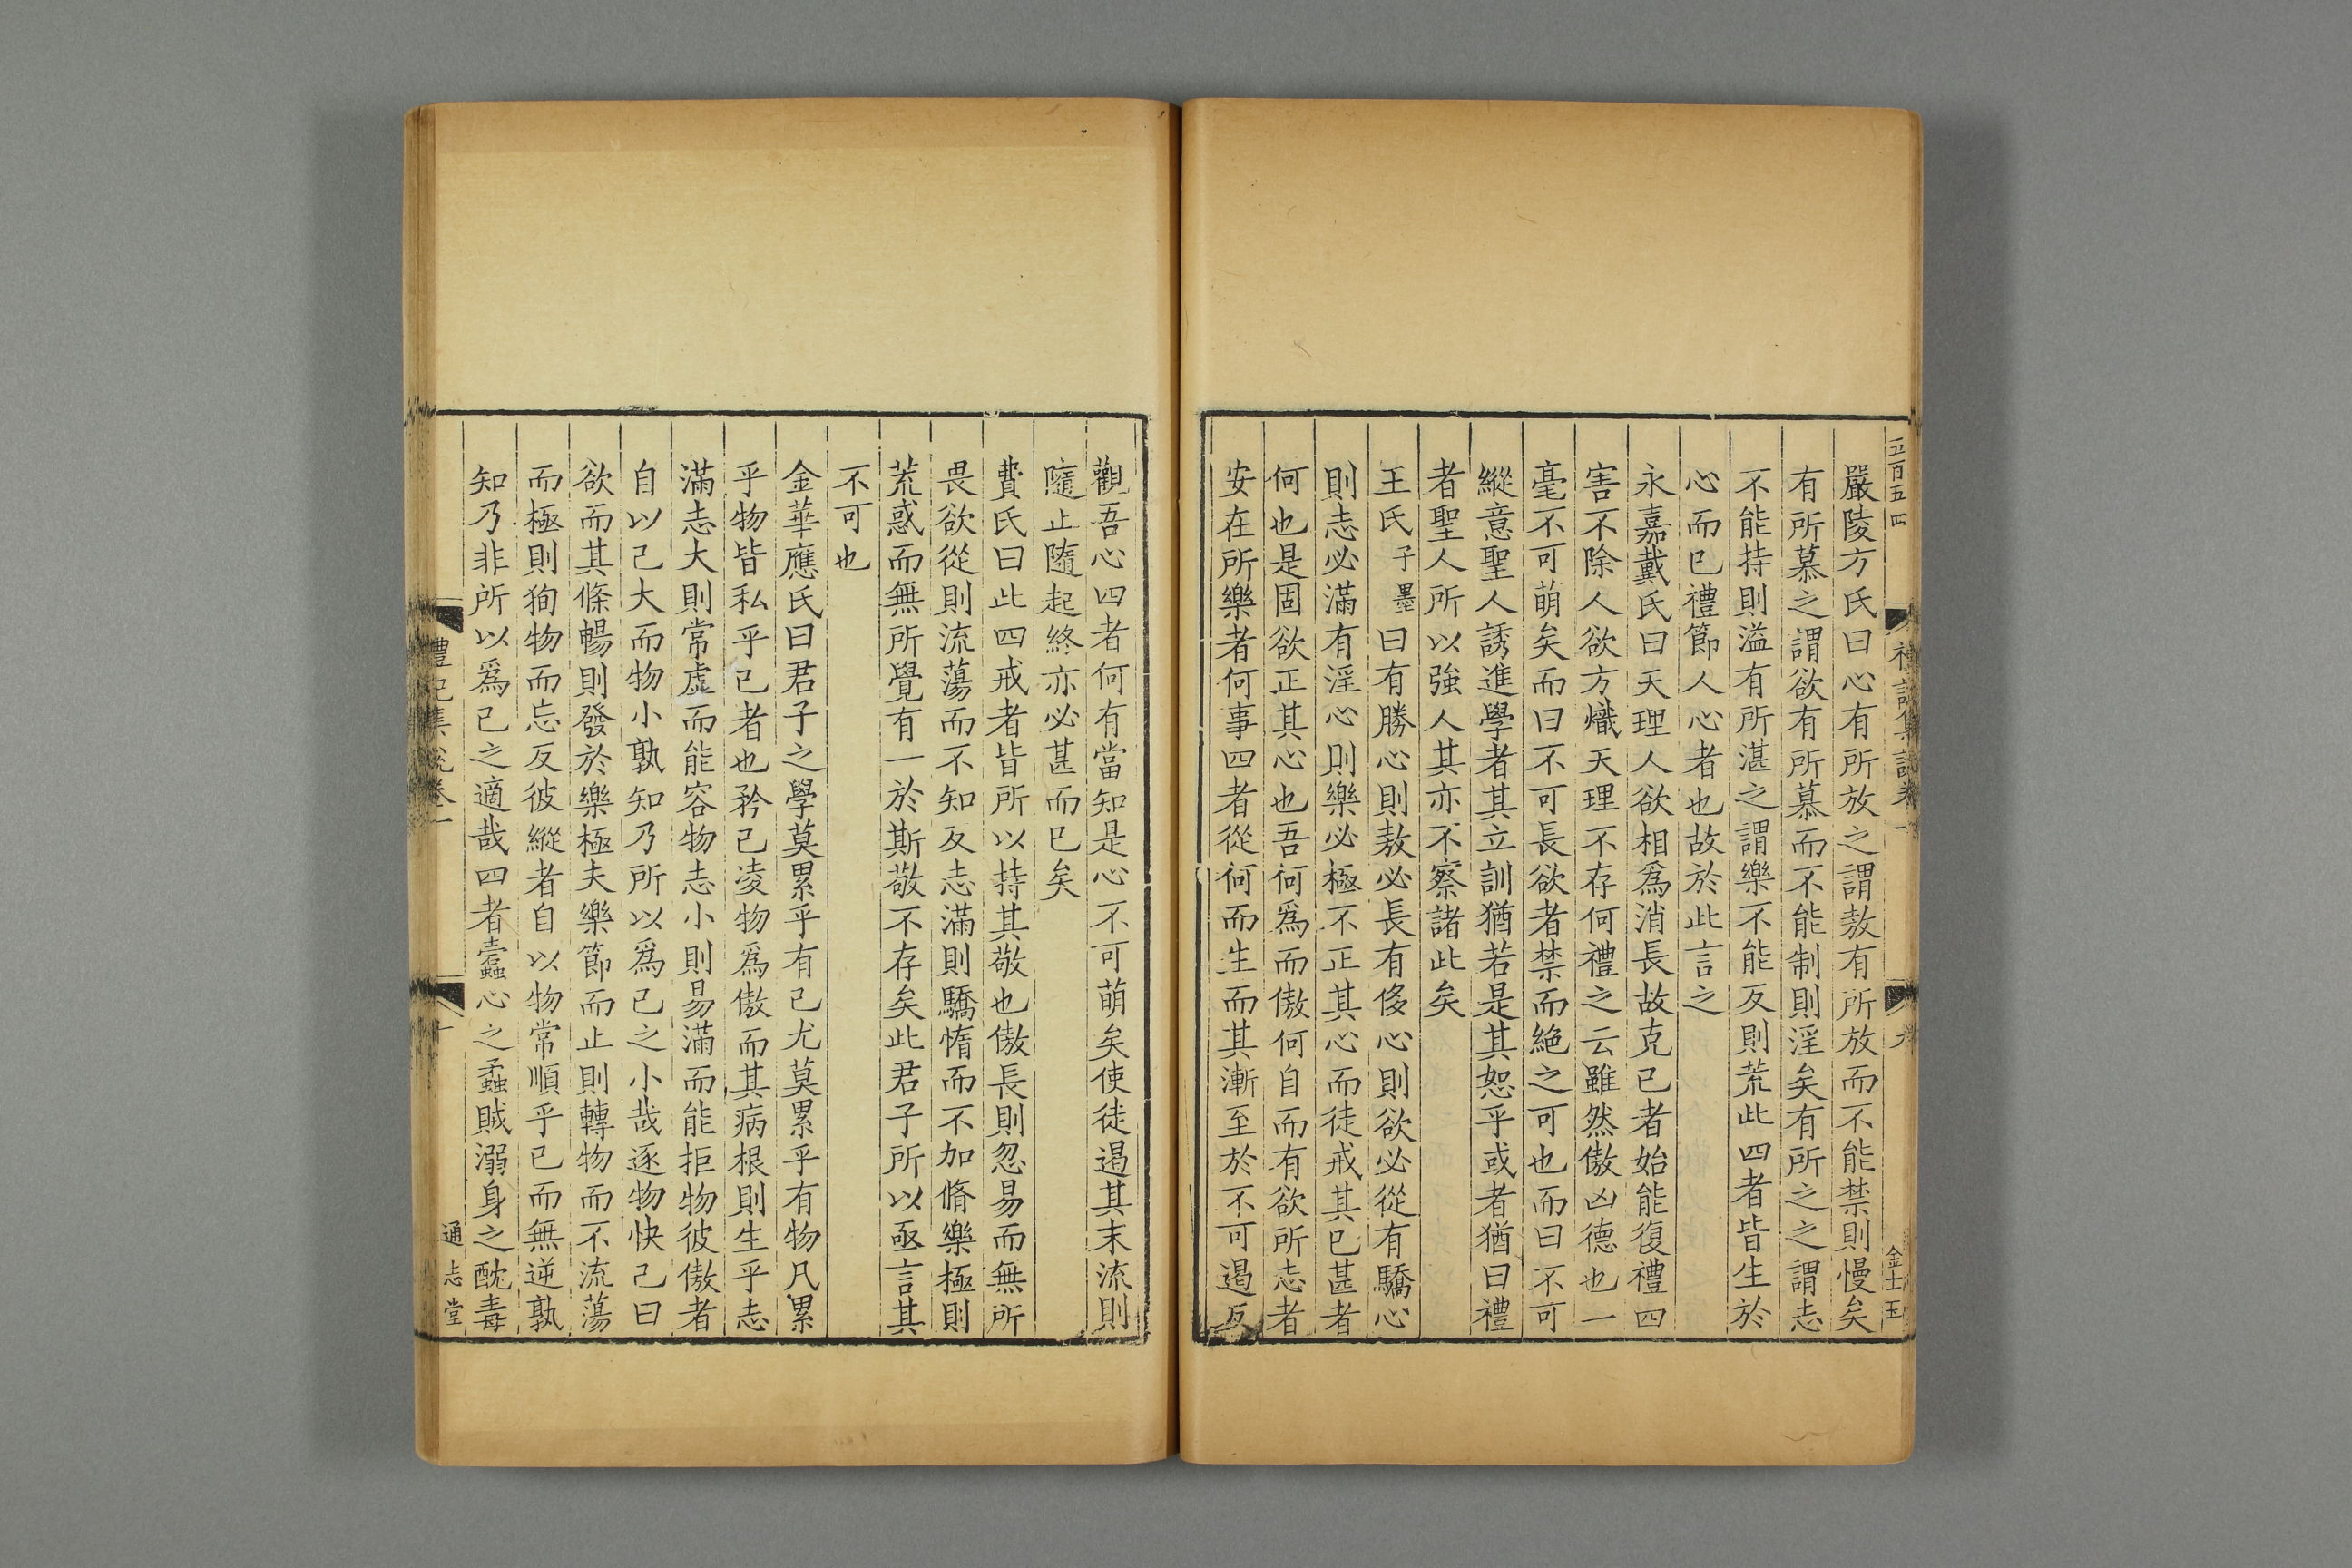 五百五四
禮記集說卷一
九
金士玉
嚴陵方氏曰心有所放之謂敖有所放而不能禁則慢矣
有所慕之謂欲有所慕而不能制則淫矣有所之之謂志
不能持則溢有所湛之謂樂不能反則荒此四者皆生於
心而已禮節人心者也故於此言之
永嘉戴氏曰天理人欲相爲消長故克己者始能復禮四
害不除人欲方熾天理不存何禮之云雖然傲凶德也一
毫不可萌矣而曰不可長欲者禁而絶之可也而曰不可
縱意聖人誘進學者其立訓猶若是其恕乎或者猶曰禮
者聖人所以強人其亦不察諸此矣
王氏子墨曰有勝心則敖必長有侈心則欲必從有驕心
則志必滿有淫心則樂必極不正其心而徒戒其已甚者
何也是固欲正其心也吾何爲而傲何自而有欲所志者
安在所樂者何事四者從何而生而其漸至於不可遏反
觀吾心四者何有當知是心不可萌矣使徒遏其末流則
隨止隨起終亦必甚而已矣
費氏曰此四戒者皆所以持其敬也傲長則忽易而無所
畏欲從則流蕩而不知反志滿則驕惰而不加脩樂極則
荒惑而無所覺有一於斯敬不存矣此君子所以亟言其
不可也
金華應氏曰君子之學莫累乎有己尤莫累乎有物凡累
乎物皆私乎己者也矜己凌物爲傲而其病根則生乎志
滿志大則常虛而能容物志小則易滿而能拒物彼傲者
自以己大而物小孰知乃所以爲己之小哉逐物快己曰
欲而其條暢則發於樂極夫樂節而止則轉物而不流蕩
而極則狥物而忘反彼縱者自以物常順乎己而無逆孰
知乃非所以爲己之適哉四者蠹心之蟊賊溺身之酖毒
禮記集說卷一
十
通志堂